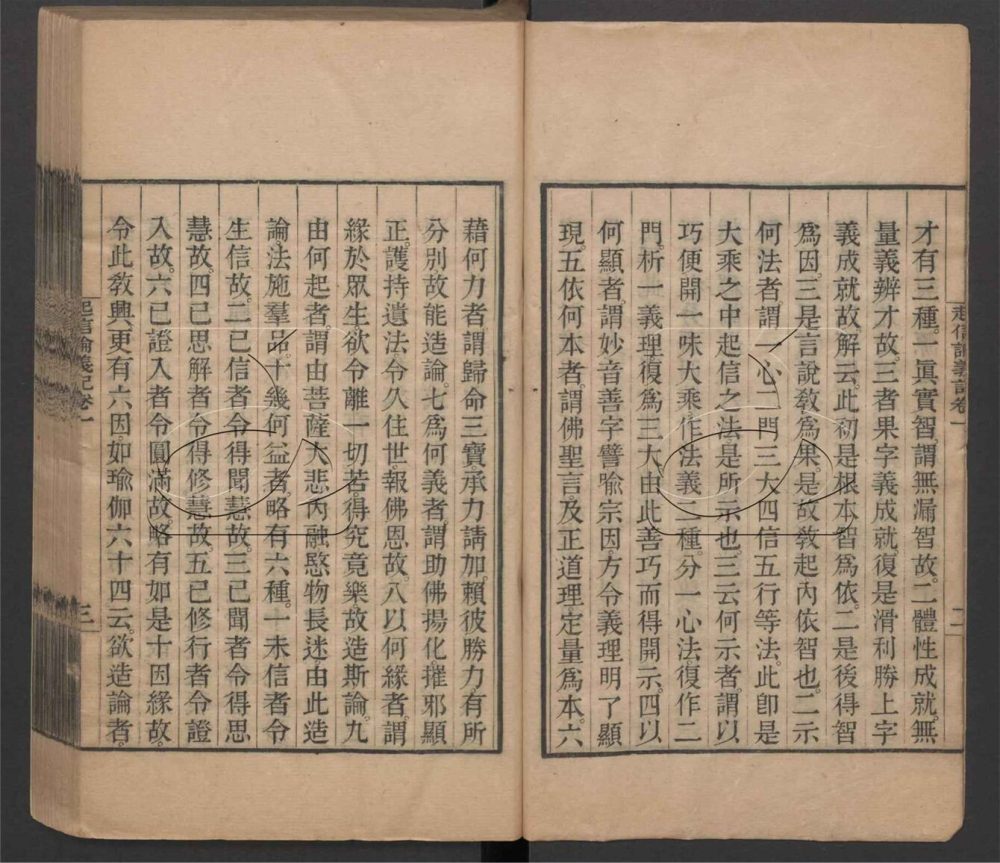 才有三種。一眞實智。謂無漏智故。二體性成就。無
量義辨才故。三者果字義成就。復是滑利勝上字
義成就故。解云。此初是根本智爲依。二是後得智
爲因。三是言說教爲果。是故敎起內依智也。二示
何法者。謂一心二門三大四信五行等法。此卽是
大乘之中起信之法。是所示也。三云何示者。謂以
巧便開一味大乘。作法義二種。分一心法。復作二
門。析一義理。復爲三大。由此善巧而得開示。四以
何顯者。謂妙音善字譬喻宗因。方令義理明了顯
現。五依何本者。謂佛聖言。及正道理定量爲本。六
起信論義記卷一
二
藉何力者。謂歸命三寶承力請加。賴彼勝力有所
分別。故能造論。七爲何義者。謂助佛揚化。摧邪顯
正。護持遺法。令久住世。報佛恩故。八以何緣者。謂
緣於眾生。欲令離一切苦。得究竟樂。故造斯論。九
由何起者。謂由菩薩大悲內融。愍物長迷。由此造
論。法施羣品。十幾何益者。略有六種。一未信者令
生信故。二已信者令得聞慧故。三已聞者令得思
慧故。四已思解者令得修慧故。五已修行者令證
入故。六已證入者令圓滿故。略有如是十因緣故。
令此敎興。更有六因。如瑜伽六十四云。欲造論者。
起信論義記卷一
三